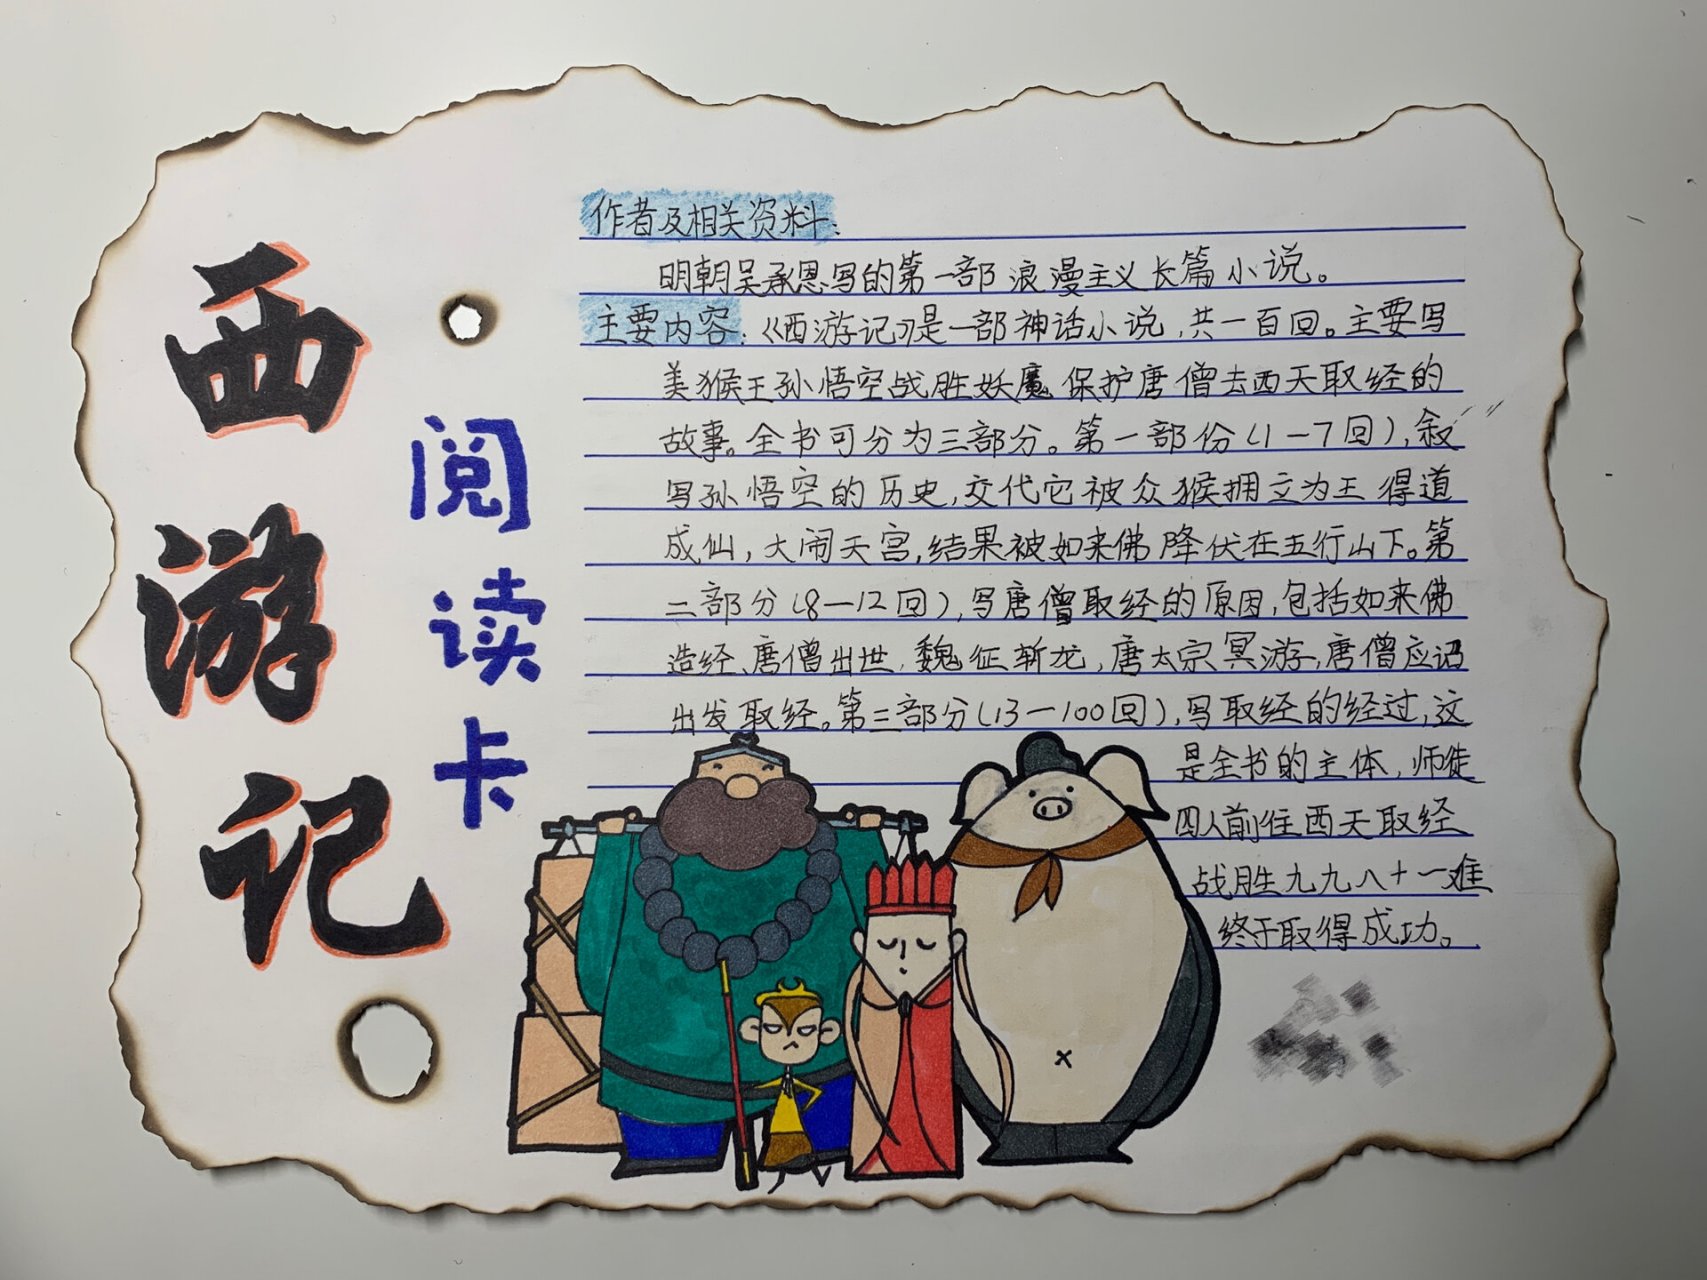 西游记
阅读卡
作者及相关资料:
明朝吴承恩写的第一部浪漫主义长篇小说。
主要内容:《西游记》是一部神话小说,共一百回。主要写
美猴王孙悟空战胜妖魔保护唐僧去西天取经的
故事。全书可分为三部分。第一部份(1-7回),叙
写孙悟空的历史,交代它被众猴拥立为王得道
成仙,大闹天宫,结果被如来佛降伏在五行山下。第
二部分(8-12回),写唐僧取经的原因,包括如来佛
造经、唐僧出世,魏征斩龙,唐太宗冥游,唐僧应诏
出发取经。第三部分(13-100回),写取经的经过,这
是全书的主体,师徒
四人前往西天取经
战胜九九八十一难
终于取得成功。